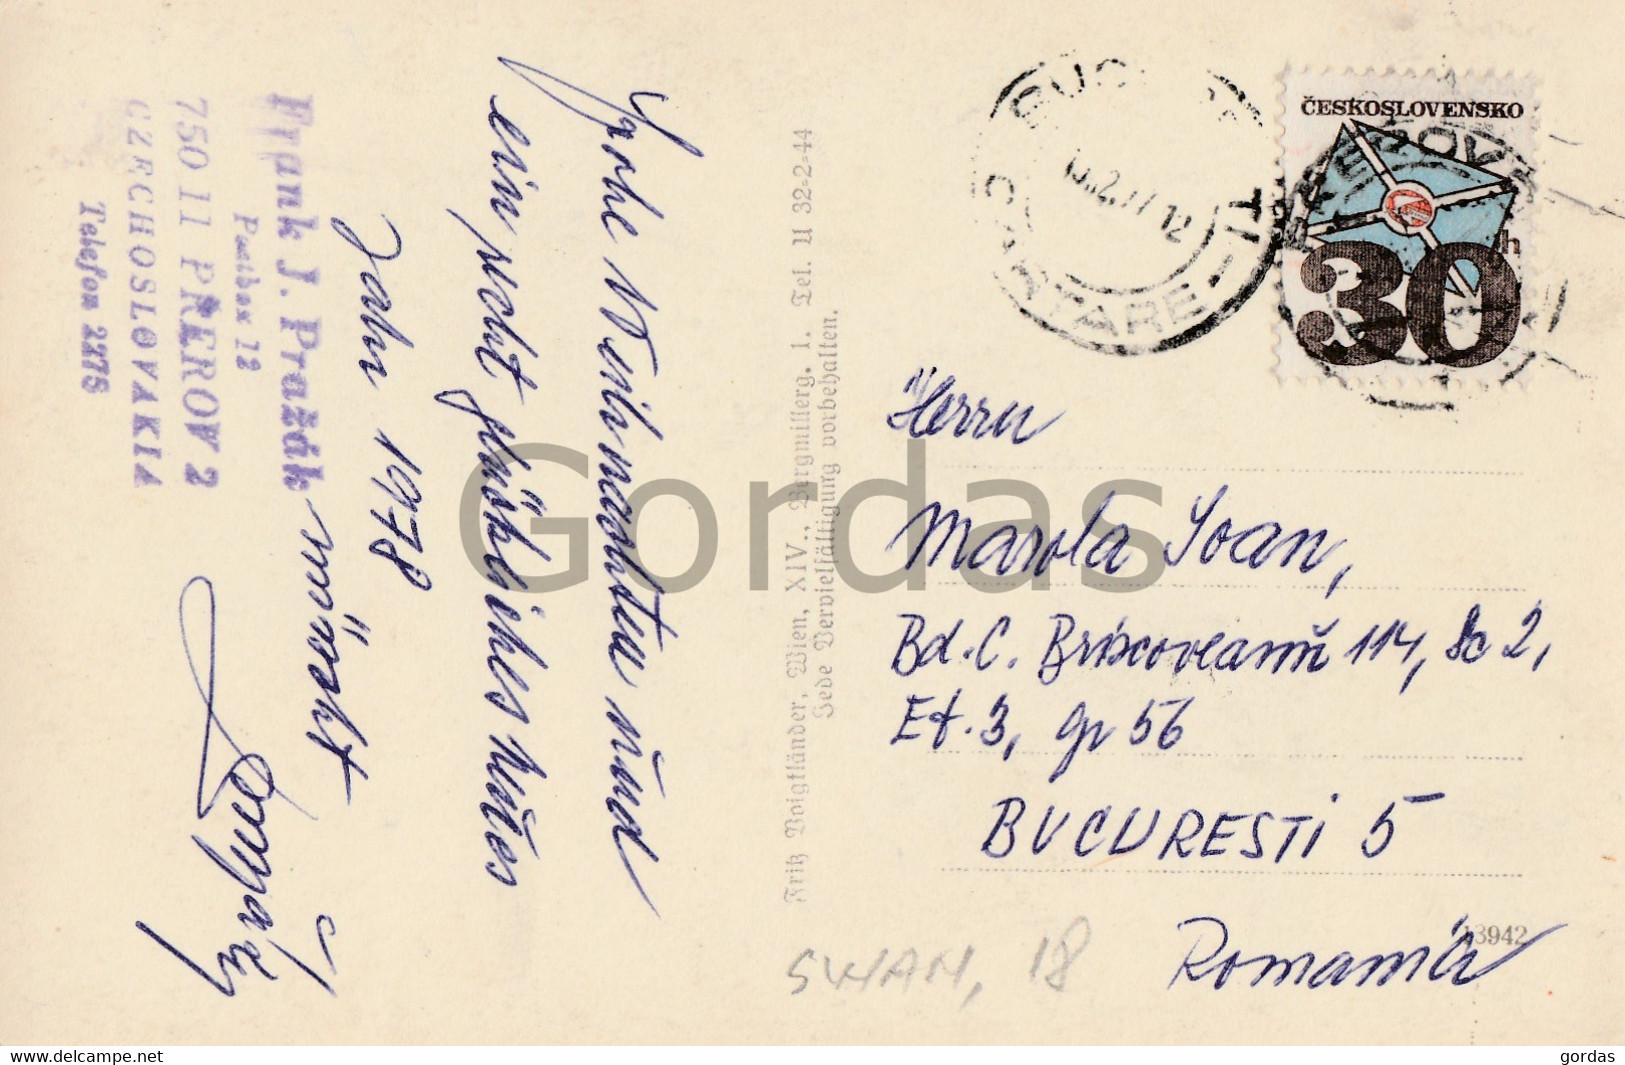 Frohe Weihnachten und
ein recht glückliches neues
Jahr 1978
wünscht
Frank J. Pražák
Postbox 12
750 11 PREROV 2
CZECHOSLOVAKIA
Telefon 2276
Fritz Voigtländer, Wien, XIV., Bergmillerg. 1. Tel. U 32-2-44
Jede Vervielfältigung vorbehalten.
ČESKOSLOVENSKO
30 h
CARTARE
Herrn
Marola Ioan,
Bd. C. Brîncoveanu 114, Sc 2,
Et. 3, gr 56
BUCURESTI 5
Romania
13942
SWAN, 18
Gordas
delcampe.net
gordas